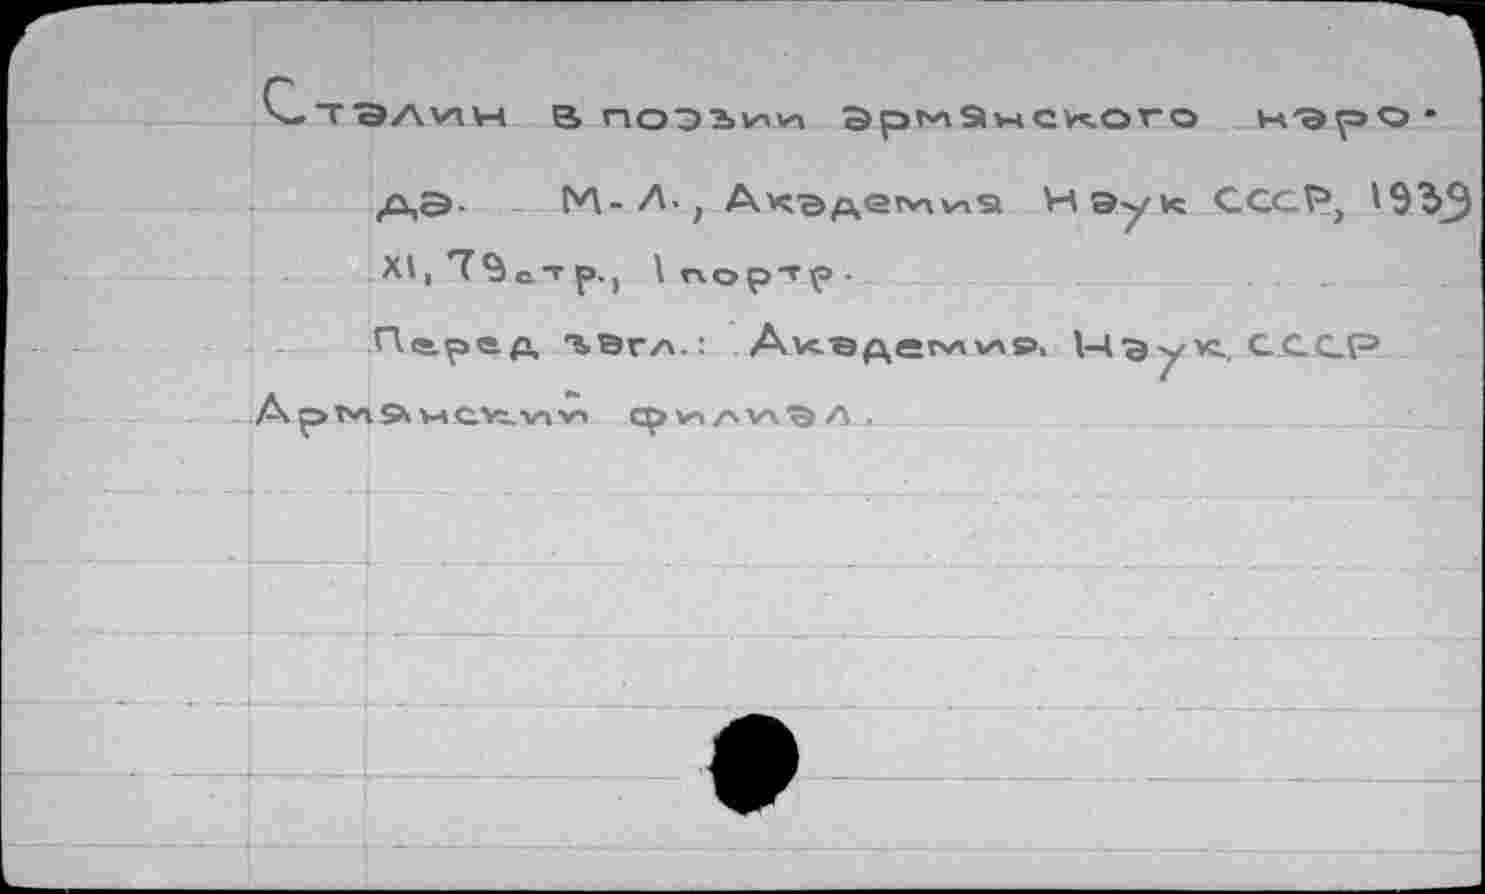 Сталин в поэзии армянского наро-
да. М-Л., Академия Наук СССР, 1939
XI, 79стр., 1 портр.
Перед загл.: Академия Наук СССР
Армянский филиал.